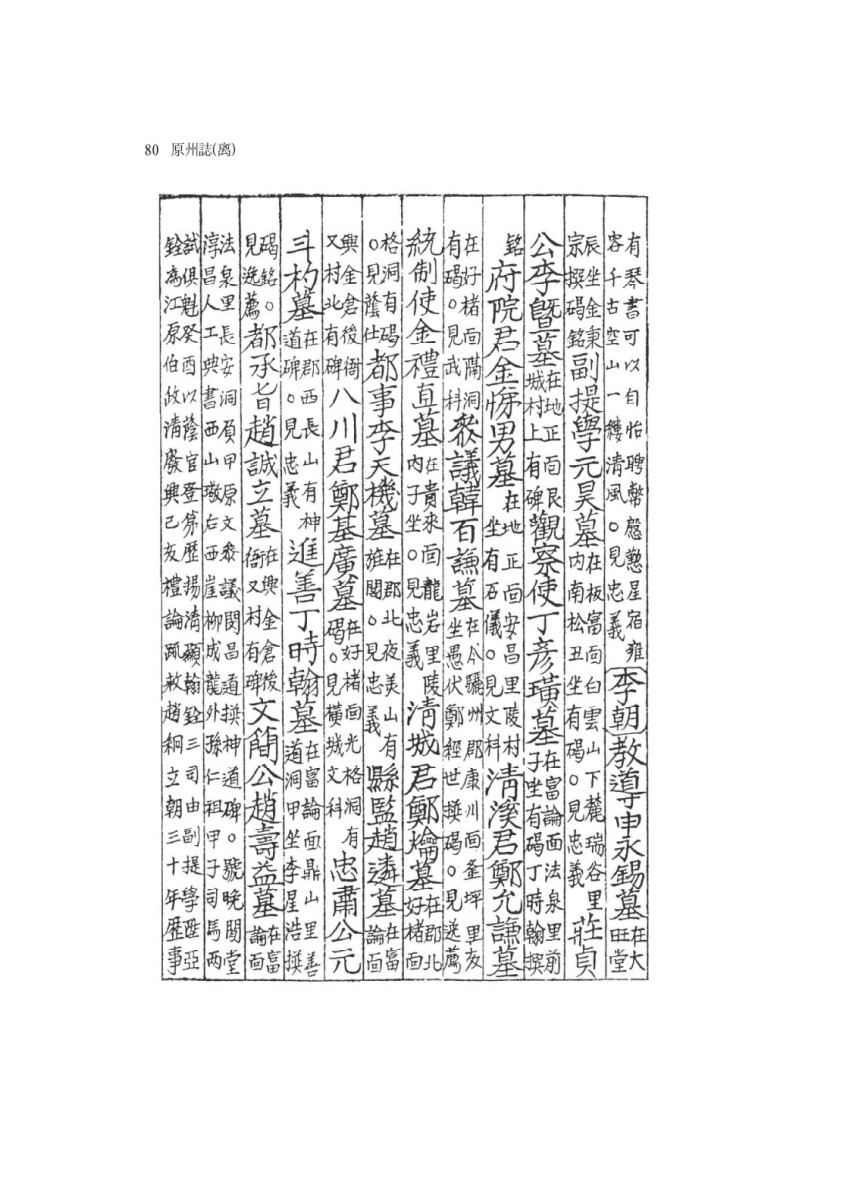 80 原州誌(离)
有琴書可以自怡聘幣慇懃星宿雍容千古空山一縷淸風○見忠義李朝教導申永錫墓在大旺堂
辰坐金東宗撰碣銘副提學元昊墓在板富面白雲山下麓瑞谷里內南松丑坐有碣○見忠義莊貞
公李曁墓在地正面艮城村上有碑觀察使丁彦璜墓在富論面法泉里前子坐有碣丁時翰撰
銘府院君金悌男墓在地正面安昌里陵村坐有石儀○見文科淸溪君鄭允謙墓
在好楮面隅洞有碣○見武科叅議韓百謙墓在今驪州郡康川面釜坪里友坐愚伏鄭經世撰碣○見逸薦
統制使金禮直墓在貴來面龍岩里陵內子坐○見忠義淸城君鄭爚墓在郡北好楮面
格洞有碣○見蔭仕都事李天機墓在郡北夜美山有旌閭○見忠義縣監趙遴墓在富論面
興金倉後衙又村北有碑八川君鄭基廣墓在好楮面光格洞有碣○見橫城文科忠肅公元
斗杓墓在郡西長山有神道碑○見忠義進善丁時翰墓在富論面鼎山里善道洞甲坐李星浩撰
碣銘○見逸薦都承旨趙誠立墓在興金倉後衙又村有碑文簡公趙壽益墓在富論面
法泉里長安洞負甲原文叅議閔昌道撰神道碑○號晩閒堂淳昌人工典書西山璥后西崖柳成龍外孫仁祖甲子司馬兩
試俱魁癸酉以蔭官登第歷揚淸顯翰銓三司由副提學陞亞銓爲江原伯淸廢興己亥禮論疏救趙絅立朝三十年歷事